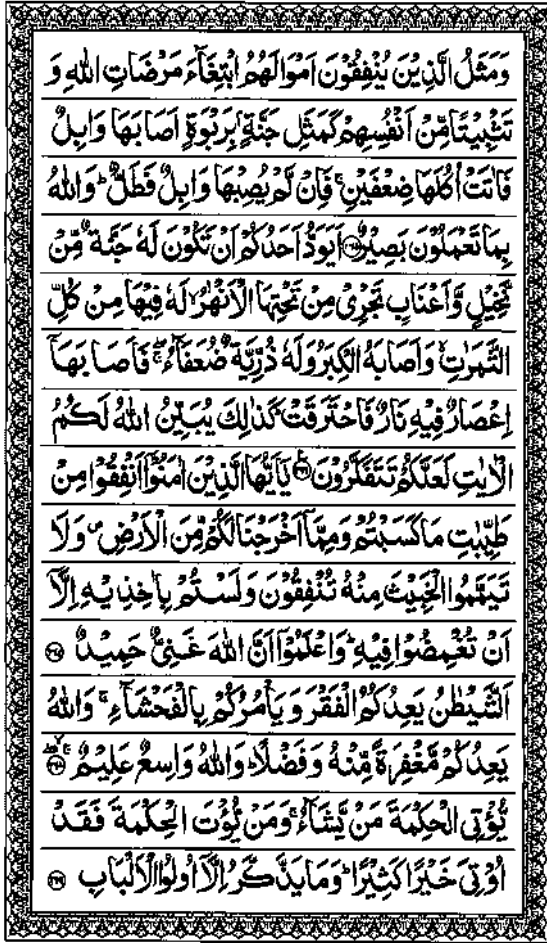 وَمَثَلُ الَّذِيْنَ يُنْفِقُوْنَ اَمْوَالَهُمُ ابْتِغَآءَ مَرْضَاتِ اللّٰهِ وَ
تَثْبِيْتًا مِّنْ اَنْفُسِهِمْ كَمَثَلِ جَنَّةٍۭ بِرَبْوَةٍ اَصَابَهَا وَابِلٌ
فَاٰتَتْ اُكُلَهَا ضِعْفَيْنِ ۚ فَاِنْ لَّمْ يُصِبْهَا وَابِلٌ فَطَلٌّ ؕ وَاللّٰهُ
بِمَا تَعْمَلُوْنَ بَصِيْرٌ ﴿۲۶۵﴾ اَيَوَدُّ اَحَدُكُمْ اَنْ تَكُوْنَ لَهٗ جَنَّةٌ مِّنْ
نَّخِيْلٍ وَّاَعْنَابٍ تَجْرِيْ مِنْ تَحْتِهَا الْاَنْهٰرُ ۙ لَهٗ فِيْهَا مِنْ كُلِّ
الثَّمَرٰتِ ۙ وَاَصَابَهُ الْكِبَرُ وَلَهٗ ذُرِّيَّةٌ ضُعَفَآءُ ۖ فَاَصَابَهَاۤ
اِعْصَارٌ فِيْهِ نَارٌ فَاحْتَرَقَتْ ؕ كَذٰلِكَ يُبَيِّنُ اللّٰهُ لَكُمُ
الْاٰيٰتِ لَعَلَّكُمْ تَتَفَكَّرُوْنَ ﴿۲۶۶﴾ يٰۤاَيُّهَا الَّذِيْنَ اٰمَنُوْۤا اَنْفِقُوْا مِنْ
طَيِّبٰتِ مَا كَسَبْتُمْ وَمِمَّاۤ اَخْرَجْنَا لَكُمْ مِّنَ الْاَرْضِ ۪ وَلَا
تَيَمَّمُوا الْخَبِيْثَ مِنْهُ تُنْفِقُوْنَ وَلَسْتُمْ بِاٰخِذِيْهِ اِلَّاۤ
اَنْ تُغْمِضُوْا فِيْهِ ؕ وَاعْلَمُوْۤا اَنَّ اللّٰهَ غَنِيٌّ حَمِيْدٌ ﴿۲۶۷﴾
اَلشَّيْطٰنُ يَعِدُكُمُ الْفَقْرَ وَيَاْمُرُكُمْ بِالْفَحْشَآءِ ۚ وَاللّٰهُ
يَعِدُكُمْ مَّغْفِرَةً مِّنْهُ وَفَضْلًا ؕ وَاللّٰهُ وَاسِعٌ عَلِيْمٌ ﴿۲۶۸﴾
يُّؤْتِي الْحِكْمَةَ مَنْ يَّشَآءُ ۚ وَمَنْ يُّؤْتَ الْحِكْمَةَ فَقَدْ
اُوْتِيَ خَيْرًا كَثِيْرًا ؕ وَمَا يَذَّكَّرُ اِلَّاۤ اُولُوا الْاَلْبَابِ ﴿۲۶۹﴾